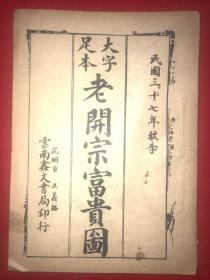 民國三十七年秋季
大字
足本
老開宗富貴圖
昆明市正義路
雲南鑫文書局印行